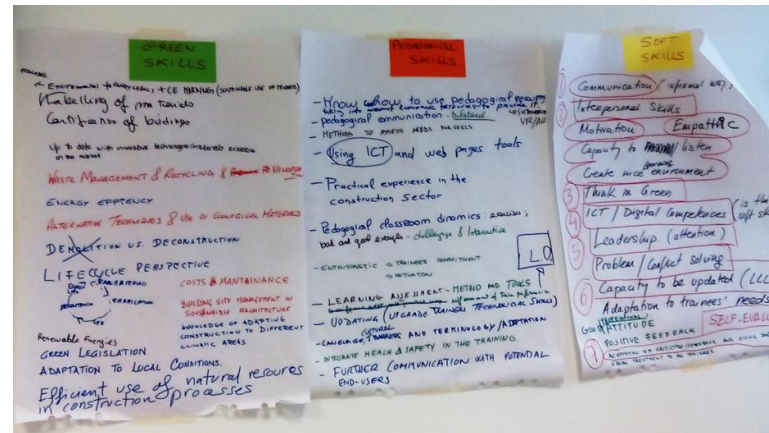 GREEN
SKILLS
+ CE MARKING (SUSTAINABLE USE OF
Labelling of materials
Certification of buildings
Up to date with innovative technologies/materials available
on the market
WASTE MANAGEMENT & RECYCLING &
ENERGY EFFICIENCY
ALTERNATIVE TECHNIQUES & USE OF ECOLOGICAL MATERIALS
DEMOLITION VS. DECONSTRUCTION
LIFECYCLE PERSPECTIVE
COSTS & MANTAINANCE
BUILDING SITE MANAGEMENT IN
SUSTAINABLE ARCHITECTURE
KNOWLEDGE OF ADAPTING
CONSTRUCTION TO DIFFERENT
CLIMATIC AREAS
Renewable Energies
GREEN LEGISLATION
ADAPTATION TO LOCAL CONDITIONS.
Efficient use of natural resources
in construction processes
PEDAGOGICAL
SKILLS
- Know how to use pedagogical resources
- pedagogical communication - bilateral
VR/AR
- METHODS TO ASSESS NEEDS FOR SKILLS
- Using ICT and web pages tools
- Practical experience in the
construction sector
- Pedagogical classroom dinamics:
bad and good examples - challenging & Interactive
- ENTHUSIASTIC TRAINERS COMMITMENT
MOTIVATION
LO
- LEARNING ASSESSMENT - METHOD AND TOOLS
- UPDATING (UPGRADE TRAINERS TECHNOLOGICAL SKILLS)
CULTURAL
- LANGUAGE, AND TERMINOLOGY/ADAPTATION
- INTEGRATE HEALTH & SAFETY IN THE TRAINING
- FURTHER COMMUNICATION WITH POTENTIAL
END-USERS
SOFT
SKILLS
1 Communication (informal way)
2 Interpersonal Skills
Motivation Empathic
Capacity to listen
learning
Create nice environment
3 Think in Green
4 ICT / Digital Competences (is the
soft
Leadership (attention)
5 Problem / Conflict solving
6 Capacity to be updated (LLL
Adaptation to trainees' needs
GOOD ATTITUDE
SELF-EVALU
7 POSITIVE FEEDBACK
EQUAL TREATMENT TO ALL TRAINEES